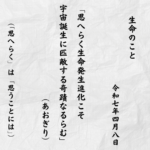 生命のこと
令和七年四月八日
「思へらく生命発生進化こそ
宇宙誕生に匹敵する奇蹟なるらむ」
(あおぎり)
(「思へらく」は「思うことには」)